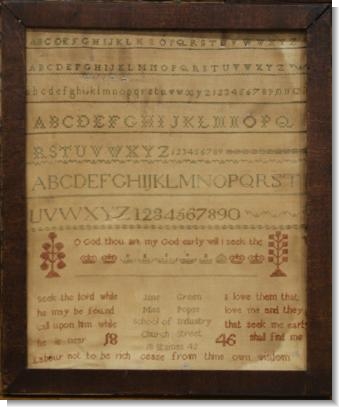 ABCDEFGHIJKLMNOPQRSTUVWXYZ
ABCDEFGHIJKLMNOPQRSTUVWXYZ
abcdefghijklmnopqrstuvwxyz1234567890
ABCDEFGHIJKLMNOPQ
RSTUVWXYZ123456789
ABCDEFGHIJKLMNOPQRST
UVWXYZ1234567890
O God thou art my God early will i seek the
seek the lord while Jane Green i love them that
he may be found Miss Popes love me and they
call upon him while School of Industry that seek me early
he is near 18 Church Street 46 shall find me
Labour not to be rich cease from thine own wisdom